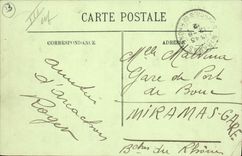 CARTE POSTALE
CORRESPONDANCE
ADRESSE
Melle
Gare de Port
de Bouc
MIRAMAS-GARE
Bches du Rhône
amitiés
d'arcachon
Roger